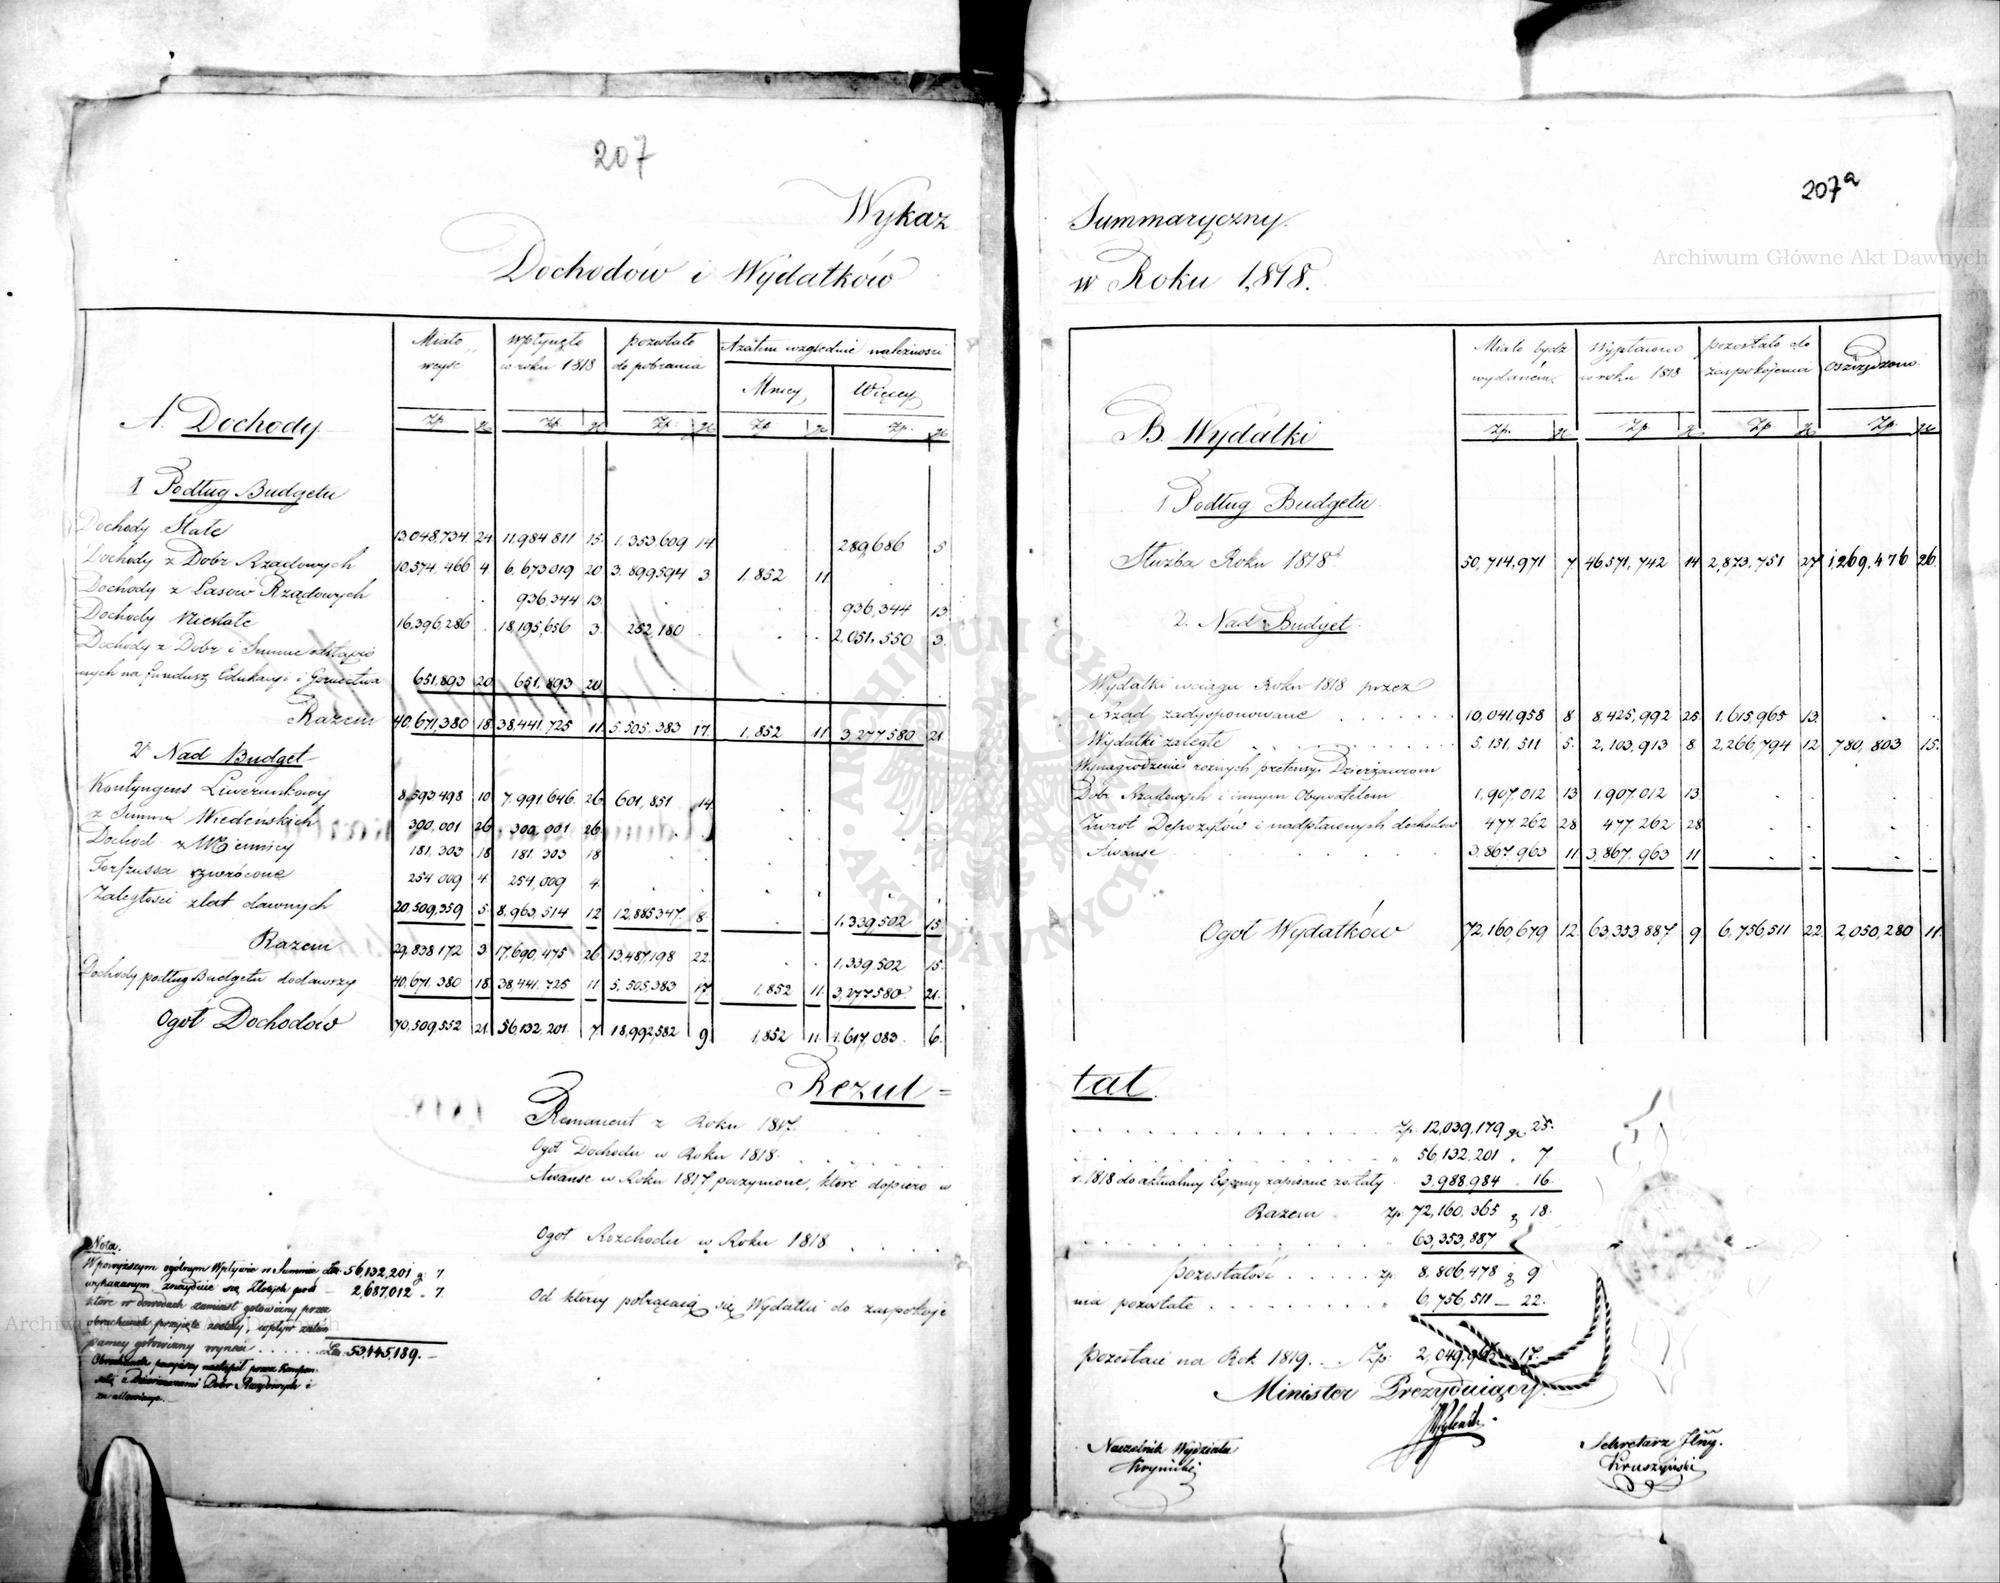 207
207a
Wykaz Summaryczny
Dochodów i Wydatków w Roku 1,818.
Archiwum Główne Akt Dawnych
Miało wejść
wpłynęło w roku 1818
pozostało do pobrania
Azatem względnie należności
Mniej
Więcej
A. Dochody
Zp. gr Zp. gr Zp. gr Zp gr Zp. gr
1 Podług Budgetu
Dochody Stałe 13,048,734 24 11,984 811 15. 1,353,609 14 289,686 5
Dochody z Dobr Rządowych 10,574,466 4 6,673,019 20 3,899,594 3. 1,852 11
Dochody z Lasow Rządowych 936,344 13. 936,344 13
Dochody Niestałe 16,396,286 18,195,656 3. 252,180 2,051,550 3.
Dochody z Dobr i Summ odstąpio
nych na fundusz Edukacyi i Gornictwa 651,893 20 651,893 20
Razem 40,671,380 18 38,441,725 11 5,505,383 17. 1,852 11 3,277,580 21
2. Nad Budget
Kontyngens Liwerunkowy 8,593,498 10 7,991,646. 26 601,851 14
z Summ Wiedeńskich 300,001 26 300,001 26
Dochod z Mennicy 181,303 18 181,303 18
Forszussa zwrócone 254,009 4 254,009 4.
Zaległości z lat dawnych 20,509,359 5. 8,963,514 12 12,885,347. 8. 1,339,502 15
Razem 29,838,172 3 17,690,475 26 13,487,198 22. 1,339,502 15.
Dochody podług Budgetu dodawszy 40,671,380 18 38,441,725 11 5,505,383 17 1,852 11. 3,277,580 21.
Ogół Dochodów 70,509,552 21 56,132,201. 7. 18,992,582 9. 1,852 11. 4,617,083. 6.
Miało bydź wydaném
Wypłacono w roku 1818
pozostało do zaspokojenia
oszczędzono
B. Wydatki
Zp. gr Zp gr Zp gr Zp. gr
1. Podług Budgetu
Służba Roku 1818 50,714,971 7 46,571,742 14 2,873,751 27 1,269,476 26.
2. Nad Budget
Wydatki wciągu Roku 1818 przez
Rząd zadysponowane 10,041,958 8 8,425,992 25 1,615,965 13.
Wydatki zaległe 5,151,511 5. 2,103,913 8 2,266,794 12 780,803 15.
Wynagrodzenie rożnych pretensyi Dzierżawcom
Dobr Rządowych i innym Obywatelom 1,907,012 13 1,907,012 13
Zwrot Depozytów i nadpłaconych dochodów 477,262 28 477,262 28
Awanse 3,867,963 11 3,867,963 11
Ogół Wydatków 72,160,679 12 63,353,887 9 6,756,511 22. 2,050,280 11
Rezul=tat.
Remanent z Roku 1817. Zp. 12,039,179 gr 25.
Ogół Dochodu w Roku 1818 " 56,132,201 " 7
Awanse w Roku 1817 poczynione, które dopiero w r. 1818 do aktualney Expensy zapisane zostały. 3,988,984 " 16.
Razem Zp. 72,160,365 g 18.
Ogół Rozchodu w Roku 1818 63,353,887
Pozostałość Zp. 8,806,478 g 9
Od którey potrącaią się Wydatki do zaspokoje
nia pozostałe " 6,756,511 — 22.
pozostaie na Rok 1819. Zp:
17.
Minister Prezyduiący.
Naczelnik Wydziału
Krynicki
Sekretarz Jlny.
Kruszyński
Nota.
W powyższym ogólnym Wpływie w Summie Zł. 56,132,201 g. 7.
wykazanym znayduie się Złotych pols 2,687,012 " 7
które w dowodach zamiast gotowizny przez
obrachunek przyjęte zostały, wpływ zatem
samey gotowizny wynosi Zł. 53,445,189.—
Obrachunek powyższy nastąpił przez Kompen
z Dzierżawcami Dobr Rządowych i
Archiwum Główne Akt Dawnych
ARCHIWUM GŁÓWNE AKT DAWNYCH